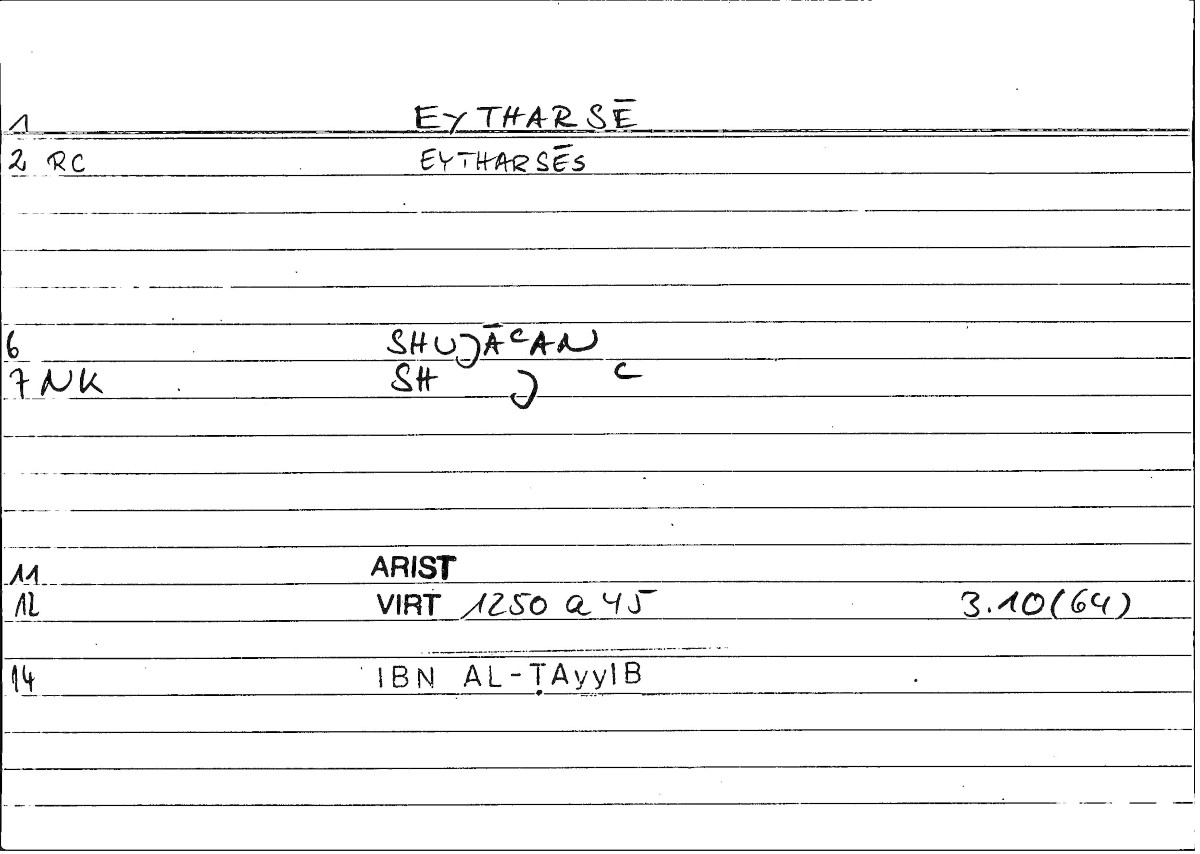 1 EYTHARSĒ
2 RC EYTHARSĒS
6 SHUJĀᶜAN
7 NK SH J ᶜ
11 ARIST
12 VIRT 1250 a 45 3.10(64)
14 IBN AL-ṬAyyIB